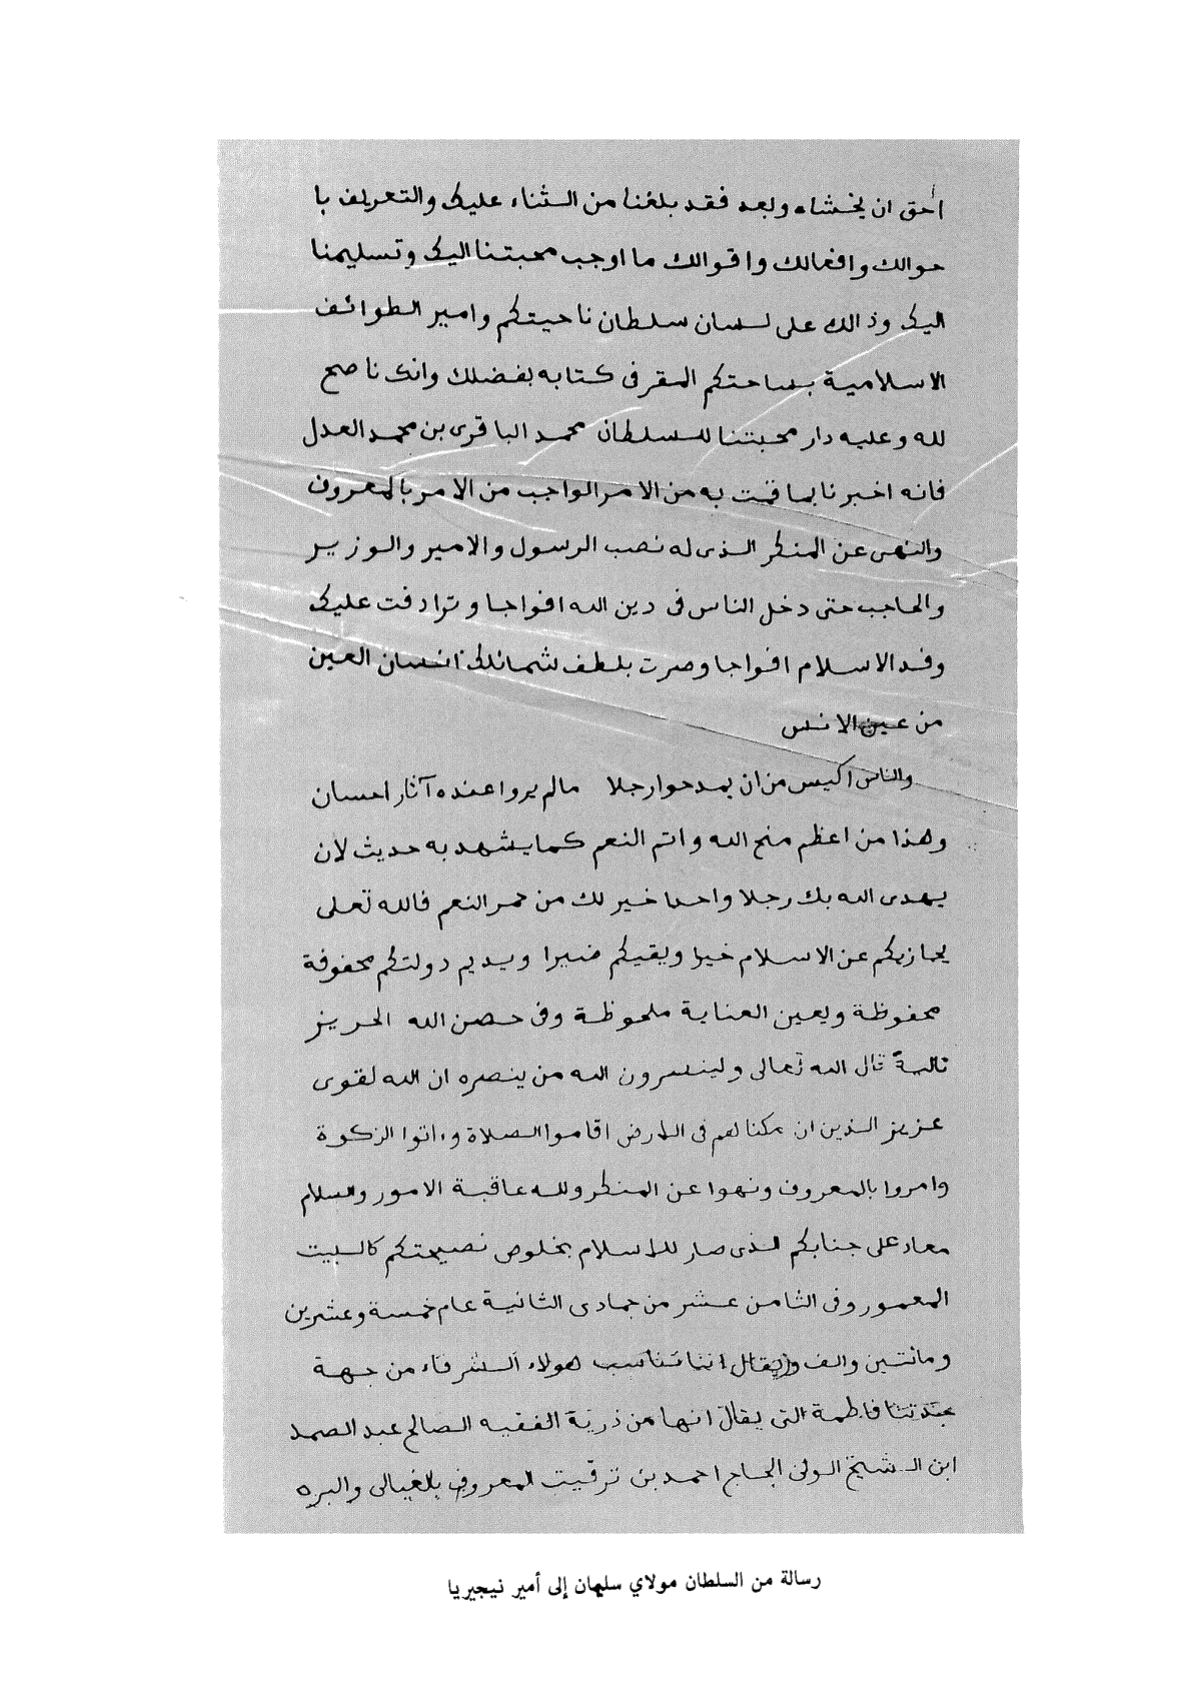 احق ان يخشاه وبعد فقد بلغنا من الثناء عليك والتعريف با
حوالك وافعالك واقوالك ما اوجب محبتنا اليك وتسليمنا
اليك وذالك على لسان سلطان ناحيتكم وامير الطوائف
الاسلامية بساحتكم المقر فى كتابه بفضلك وانك ناصح
لله وعليه دار محبتنا للسلطان محمد الباقرى بن محمد العدل
فانه اخبرنا بما قمت به من الامر الواجب من الامر بالمعروف
والنهى عن المنكر الذى له نصب الرسول والامير والوزير
والحاجب حتى دخل الناس فى دين الله افواجا وترادفت عليك
وفد الاسلام افواجا وصرت بلطف شمائلك انسان العين
من عين الانس
والناس اكيس من ان يمدحوا رجلا مالم يروا عنده آثار احسان
وهذا من اعظم منح الله واتم النعم كما يشهد به حديث لان
يهدى الله بك رجلا واحدا خير لك من حمر النعم فالله تعلى
يجازيكم عن الاسلام خيرا ويقيكم ضيرا ويديم دولتكم محفوفة
محفوظة وبعين العناية ملحوظة وفى حصن الله الحريز
قال الله تعالى ولينصرون الله من ينصره ان الله لقوى
عزيز الذين ان مكناهم فى الارض اقاموا الصلاة وءاتوا الزكوة
وامروا بالمعروف ونهوا عن المنكر ولله عاقبة الامور والسلام
معاد على جنابكم الذى صار للاسلام بخلوص نصيحتكم كالبيت
المعمور وفى الثامن عشر من جمادى الثانية عام خمسة وعشرين
ومائتين والف ويقال اننا تناسب هولاء الشرفاء من جهة
جدتنا فاطمة التى يقال انها من ذرية الفقيه الصالح عبد الصمد
ابن الشيخ الولى الحاج احمد بن ترقيت المعروف والبره
رسالة من السلطان مولاي سليمان إلى أمير نيجيريا